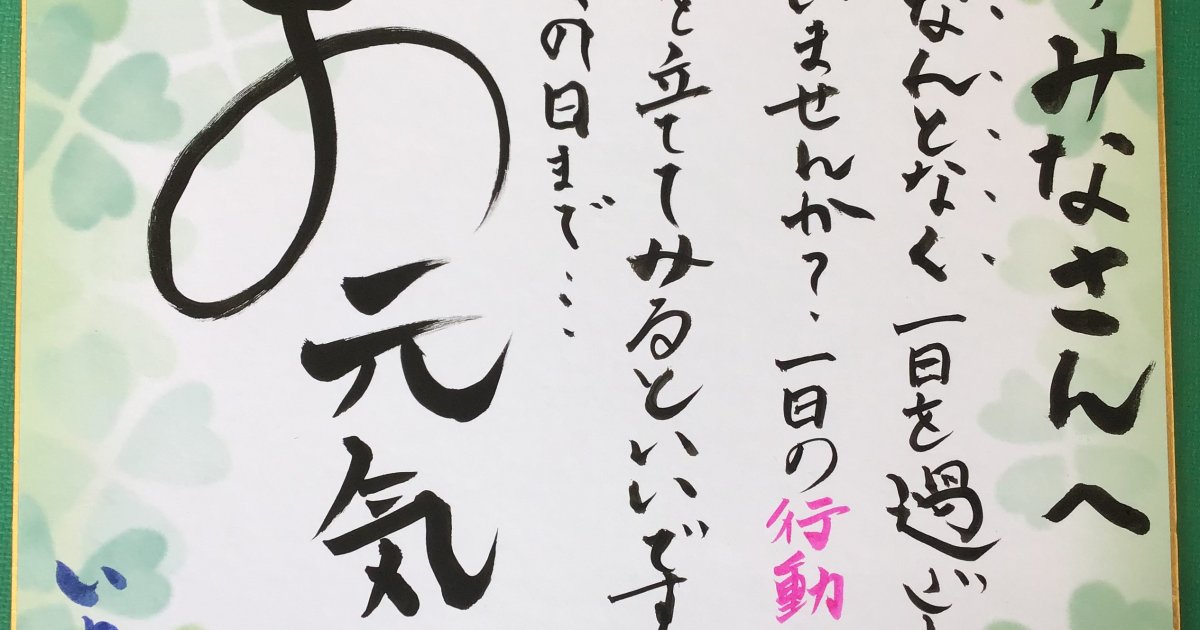 みなさんへ
なんとなく一日を過ご
いませんか？、一日の行動
を立ててみるといいです
の日まで…
お元気
い